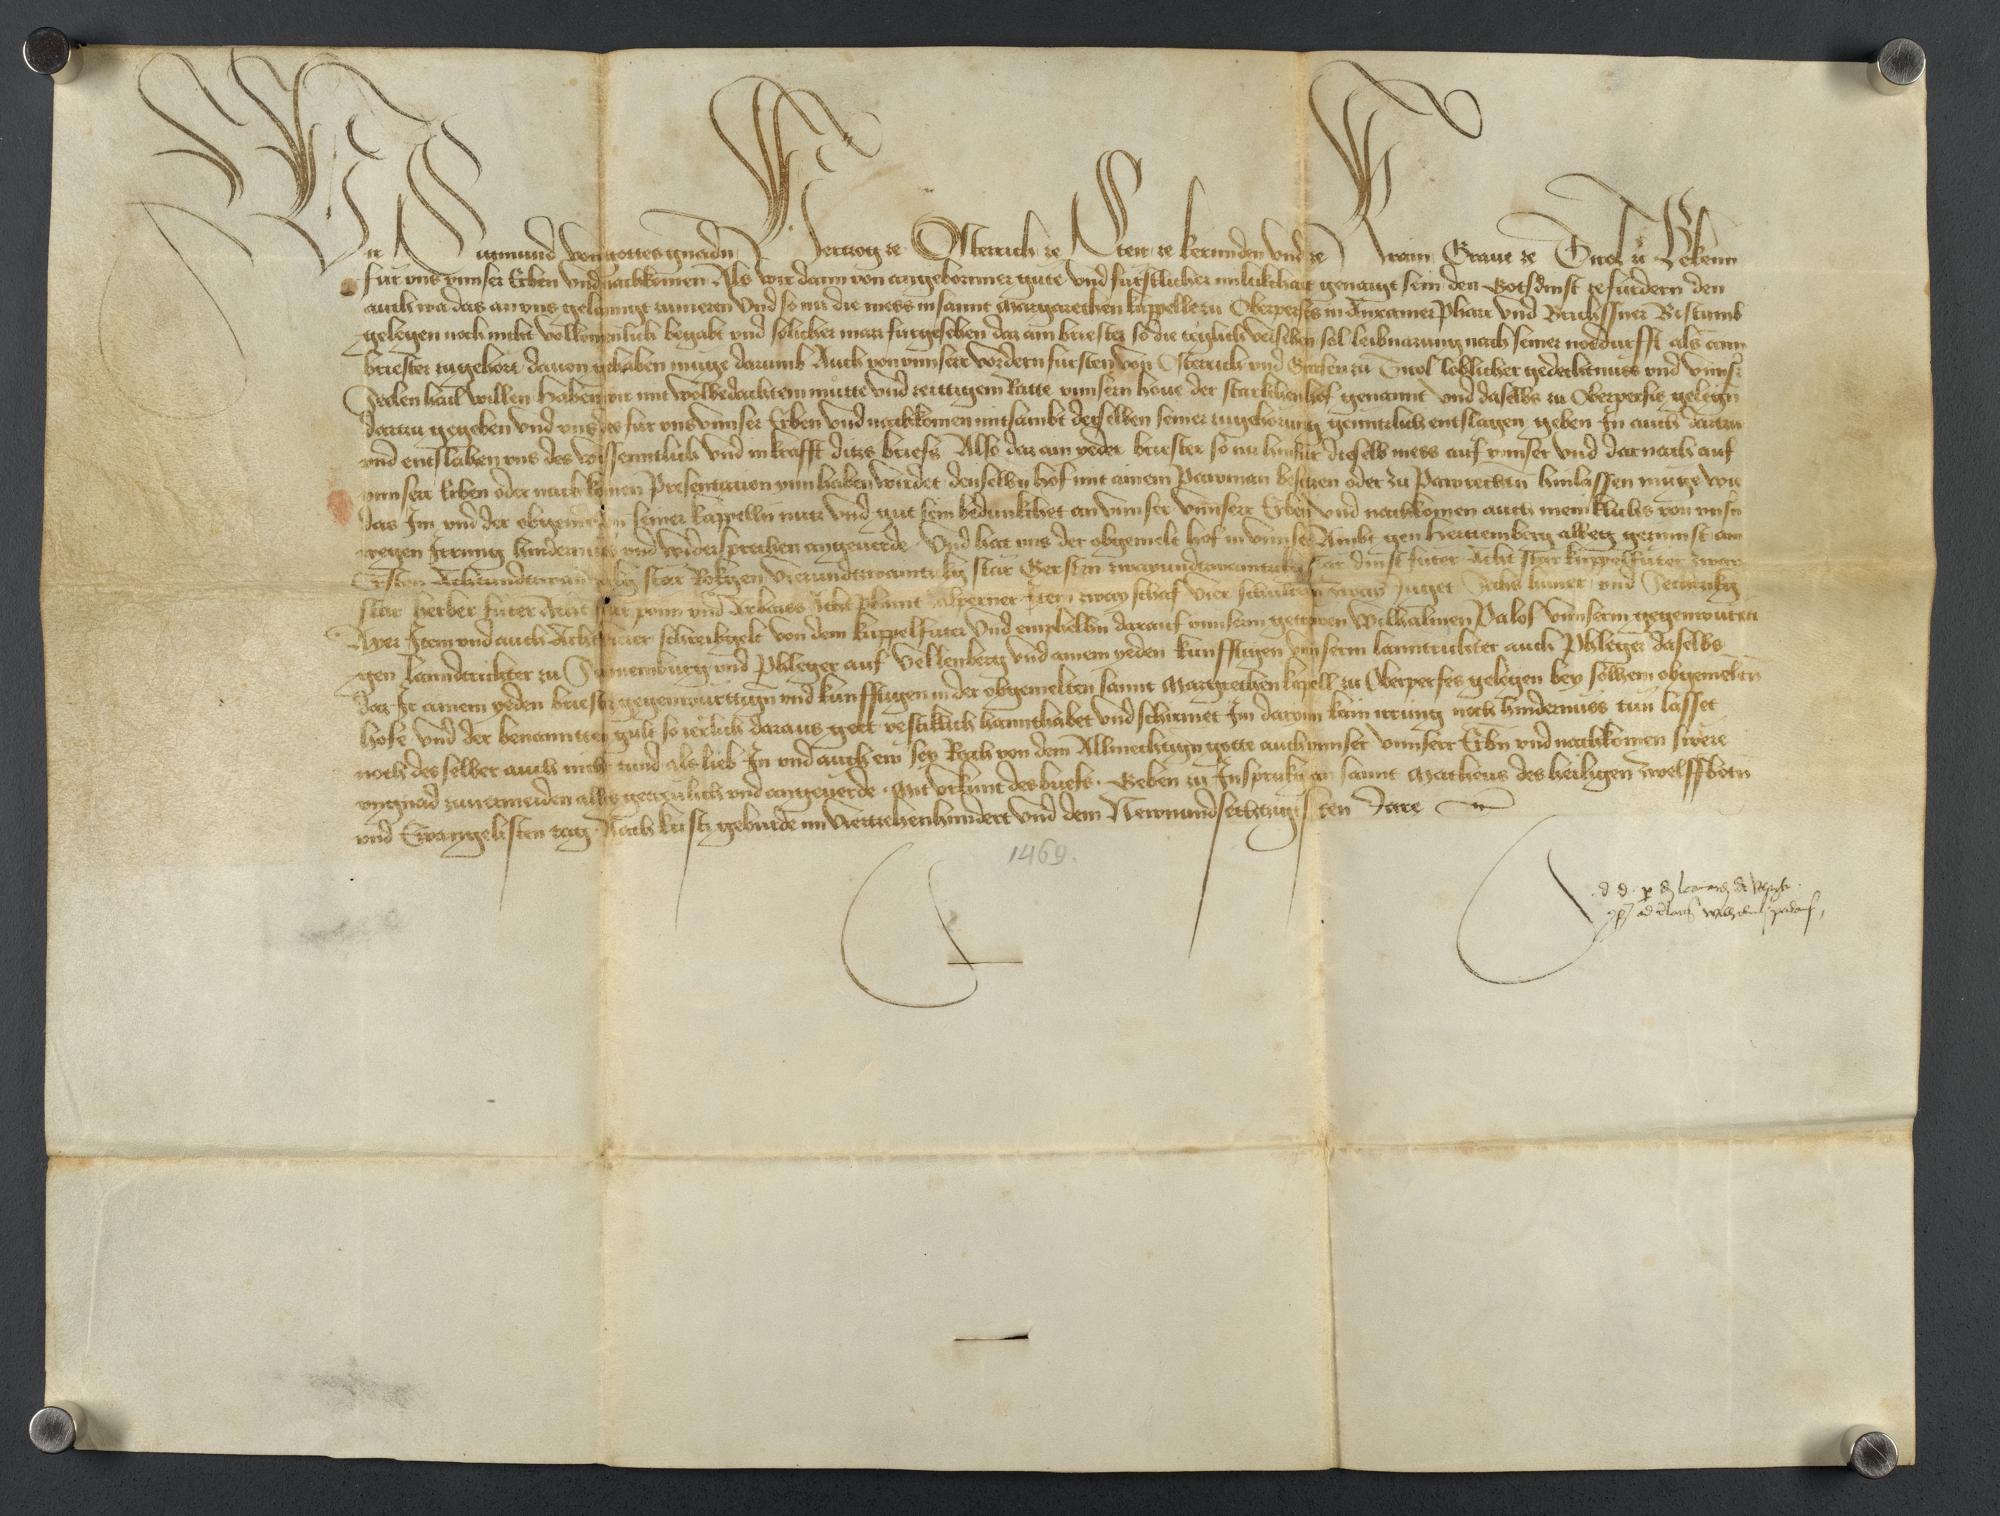 Wir Sigmund von gottes gnaden Hertzog ze Osterrich ze Steir ze kernnden und ze Krain Graue ze Tirol &c Bekenn
fur vns vnnser Erben vnd nachkomen Als wir dann von angeborner gute vnd furstlicher miltikhait genaigt sein den Gotsdinst ze furdern den
auch wa das an vns gelanngt zumeren Vnd so nu die mess in sannt Margarethen kappelle zu Oberperfes in Axamer Pharr vnd Brichssner Bistumb
gelegen noch nicht volkomenlich begabt vnd solicher mass furgesehen daz ain briester so die teglich versehen sol leibnarung nach seiner notdurfft als aim
briester zugehort dauon gehaben muge darumb Auch von vnnserr vordern fursten von Osterrich vnd Grafen zu Tirol loblicher gedechtnuss vnd vnnsr
Seelen hail willen Haben wir mit wolbedachtem mutte vnd zeittigem Ratte vnnsern houe der starkchenhof genannt vnd daselbs zu Oberperfes gelegn
dartzu gegeben vnd vns des fur vns vnnser Erben vnd nachkomen mitsambt desselben seiner zugehorung genntzlich entslagen geben In auch dartzu
vnd entslahen vns des wissenntlich vnd in krafft ditzs briefs Also daz ain yeder briester so nu hinfur dieselb mess auf vnnser vnd darnach auf
vnnserr Erben oder nachkomen Presentacion ynnhaben wirdet denselbn hof mit ainem Pawman besetzen oder zu Pawrechtn hinlassen muge wie
das Im vnd der obgemelten seiner kappelln nutz vnd gut sein bedunkhet an vnnser vnnserr Erben vnd nachkomen auch meniklichs von vnsn
wegen Irrung hindernuss vnd widersprechen angeuerde Vnd hat vns der obgemelt hof in vnnser Ambt gen Hertemberg alweg gezinnst am
Ersten Achtundtzwaintzikg star Rokgen vierundtzwaintzikg star Gersten zwayundtzwaintzikg star dinst futer Acht star kuppelfuter zway
star herber futer Acht star ponn vnd Arbaiss Acht phunt perner Item zway schaf vier schultern zway Juget Sechs huner vnd Sechtzikg
Ayer Item vnd auch Acht vierer schreibgelt von dem kuppelfuter Vnd emphelhn darauf vnnserm getrewen Wilhalmen Palof vnnserm gegenwurtti
gen lanndtrichter zu Sonnemburg vnd Phleger auf Vellenberg vnd ainem yeden kunfftigen vnnserm lanntrichter auch Phleger daselbs
daz Ir ainem yeden briester gegenwurttign vnd kunfftigen in der obgemelten sannt Margrethen kapell zu Oberperfes gelegen bey solhem obgemeltn
hofe vnd der benanntten gult so jerlich daraus geet vestiklich hannthabet vnd schirmet Im daran kain irrung noch hindernuss tun lasset
noch des selber auch nicht tund als lieb In vnd auch ew sey Rach von dem Allmechtign gotte auch vnnser vnnserr Erbn vnd nachkomen swere
vngnad zuuermeiden alles getrewlich vnd angeuerde Mit vrkunt des briefs Geben zu Insprukg an sannt Matheus des heiligen zwelffbotn
vnd Ewangelisten tag Nach kristi geburde im viertzehenhundert vnd dem Newnundsechtzigisten Jare
1469.
d d p